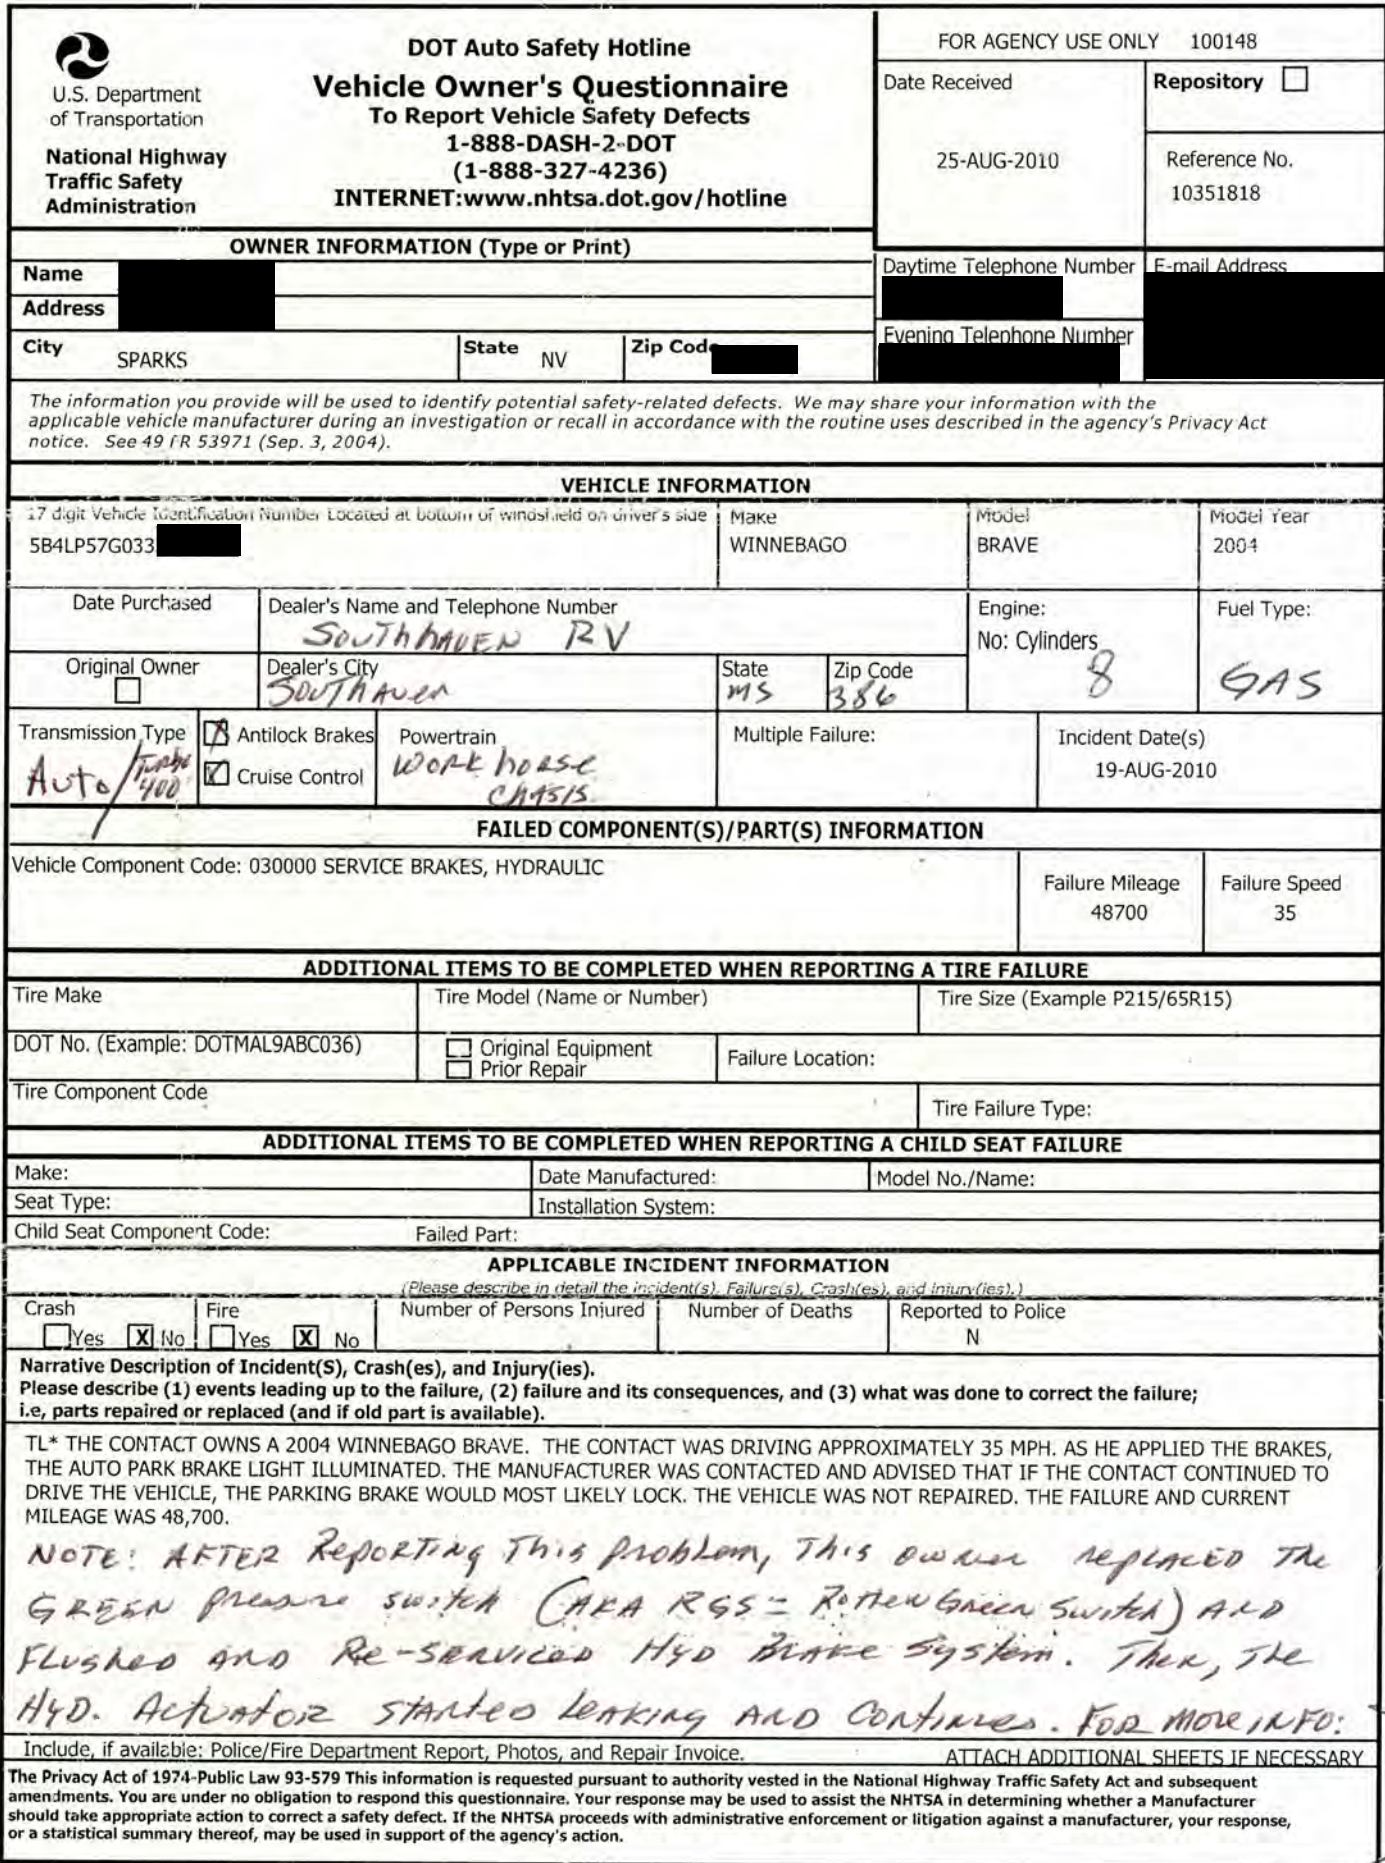 U.S. Department
of Transportation
National Highway
Traffic Safety
Administration
DOT Auto Safety Hotline
Vehicle Owner's Questionnaire
To Report Vehicle Safety Defects
1-888-DASH-2-DOT
(1-888-327-4236)
INTERNET:www.nhtsa.dot.gov/hotline
FOR AGENCY USE ONLY 100148
Date Received
25-AUG-2010
Repository
Reference No.
10351818
OWNER INFORMATION (Type or Print)
Name
Address
City SPARKS State NV Zip Code
Daytime Telephone Number
E-mail Address
Evening Telephone Number
The information you provide will be used to identify potential safety-related defects. We may share your information with the
applicable vehicle manufacturer during an investigation or recall in accordance with the routine uses described in the agency's Privacy Act
notice. See 49 FR 53971 (Sep. 3, 2004).
VEHICLE INFORMATION
17 digit Vehicle Identification Number Located at bottom of windshield on driver's side
5B4LP57G033
Make
WINNEBAGO
Model
BRAVE
Model Year
2004
Date Purchased
Dealer's Name and Telephone Number
SOUTHHAVEN RV
Engine:
No: Cylinders
8
Fuel Type:
GAS
Original Owner
Dealer's City
SOUTHAVEN
State
MS
Zip Code
386
Transmission Type
Auto/Turbo
400
Antilock Brakes
Cruise Control
Powertrain
WORKhorse
CHASIS
Multiple Failure:
Incident Date(s)
19-AUG-2010
FAILED COMPONENT(S)/PART(S) INFORMATION
Vehicle Component Code: 030000 SERVICE BRAKES, HYDRAULIC
Failure Mileage
48700
Failure Speed
35
ADDITIONAL ITEMS TO BE COMPLETED WHEN REPORTING A TIRE FAILURE
Tire Make
Tire Model (Name or Number)
Tire Size (Example P215/65R15)
DOT No. (Example: DOTMAL9ABC036)
Original Equipment
Prior Repair
Failure Location:
Tire Component Code
Tire Failure Type:
ADDITIONAL ITEMS TO BE COMPLETED WHEN REPORTING A CHILD SEAT FAILURE
Make:
Date Manufactured:
Model No./Name:
Seat Type:
Installation System:
Child Seat Component Code:
Failed Part:
APPLICABLE INCIDENT INFORMATION
(Please describe in detail the incident(s), Failure(s), Crash(es), and injury(ies).)
Crash
Yes X No
Fire
Yes X No
Number of Persons Injured
Number of Deaths
Reported to Police
N
Narrative Description of Incident(S), Crash(es), and Injury(ies).
Please describe (1) events leading up to the failure, (2) failure and its consequences, and (3) what was done to correct the failure;
i.e, parts repaired or replaced (and if old part is available).
TL* THE CONTACT OWNS A 2004 WINNEBAGO BRAVE. THE CONTACT WAS DRIVING APPROXIMATELY 35 MPH. AS HE APPLIED THE BRAKES,
THE AUTO PARK BRAKE LIGHT ILLUMINATED. THE MANUFACTURER WAS CONTACTED AND ADVISED THAT IF THE CONTACT CONTINUED TO
DRIVE THE VEHICLE, THE PARKING BRAKE WOULD MOST LIKELY LOCK. THE VEHICLE WAS NOT REPAIRED. THE FAILURE AND CURRENT
MILEAGE WAS 48,700.
NOTE: AFTER Reporting This problem, This owner replaced The
GREEN pressure switch (AKA RGS = Rotten Green Switch) AND
Flushed AND Re-serviced Hyd Brake System. Then, The
HYD. Actuator started leaking AND Continues. For more INFO:
Include, if available: Police/Fire Department Report, Photos, and Repair Invoice.
ATTACH ADDITIONAL SHEETS IF NECESSARY
The Privacy Act of 1974-Public Law 93-579 This information is requested pursuant to authority vested in the National Highway Traffic Safety Act and subsequent
amendments. You are under no obligation to respond this questionnaire. Your response may be used to assist the NHTSA in determining whether a Manufacturer
should take appropriate action to correct a safety defect. If the NHTSA proceeds with administrative enforcement or litigation against a manufacturer, your response,
or a statistical summary thereof, may be used in support of the agency's action.